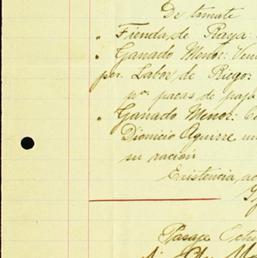 De tomate
" Tienda de Raya
" Ganado Menor: Ven
por Labor de Riego:
pr. pacas de paja
" Ganado Menor: Co
Dionicio Aguirre un
su ración
Existencia, ac
Pasaje Octu